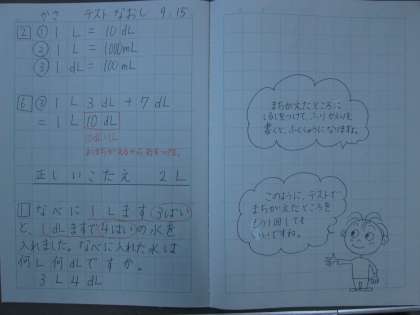 かさ テストなおし 9.15
2 ① 1 L = 10 dL
② 1 L = 1000mL
③ 1 dL = 100mL
6 ② 1 L 3 dL + 7 dL
= 1 L 10 dL
10dL=1L
正しいこたえ 2 L
1 なべに 1 Lます(3ばい)
と、1dLますで4はいの水を
入れました。なべに入れた水は
何L何dLですか。
3 L 4 dL
まちがえたところに
しるしをつけて、ふりかえりを
書くと、ふくしゅうになりますね。
このように、テストで
まちがえたところを
もう1回しても
いいですね。